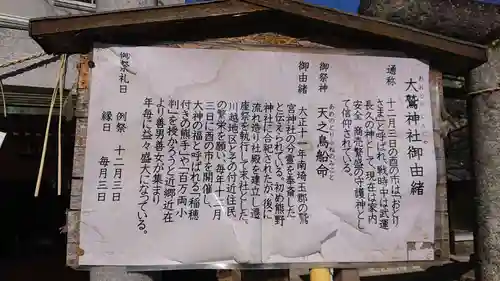 大鷲神社御由緒
おおとり
通称　十二月三日の酉の市は「おとり
さま」と呼ばれ、戦時中は武運
長久の神として、現在は家内
安全 商売繁盛の守護神とし
て信仰されている。
御祭神　天之鳥船命
あめのとりふねのみこと
御由緒　大正十一年南埼玉郡の鷲
宮神社の分霊を奉斎した
と伝えられている。初め熊野
神社に合祀したが、後に
流れ造り社殿を建立し遷
座祭を執行して末社とした。
川越地区とその付近住民
の繁栄を願い、毎年十二月
三日に酉の市を開催し、
大神の福と呼ばれる「稲穂
付きの熊手」や「百万両小
判」を授かろうと近郷近在
より善男善女が集まり
年毎に益々盛大になっている。
御祭礼日　例祭　十二月三日
縁日　毎月三日